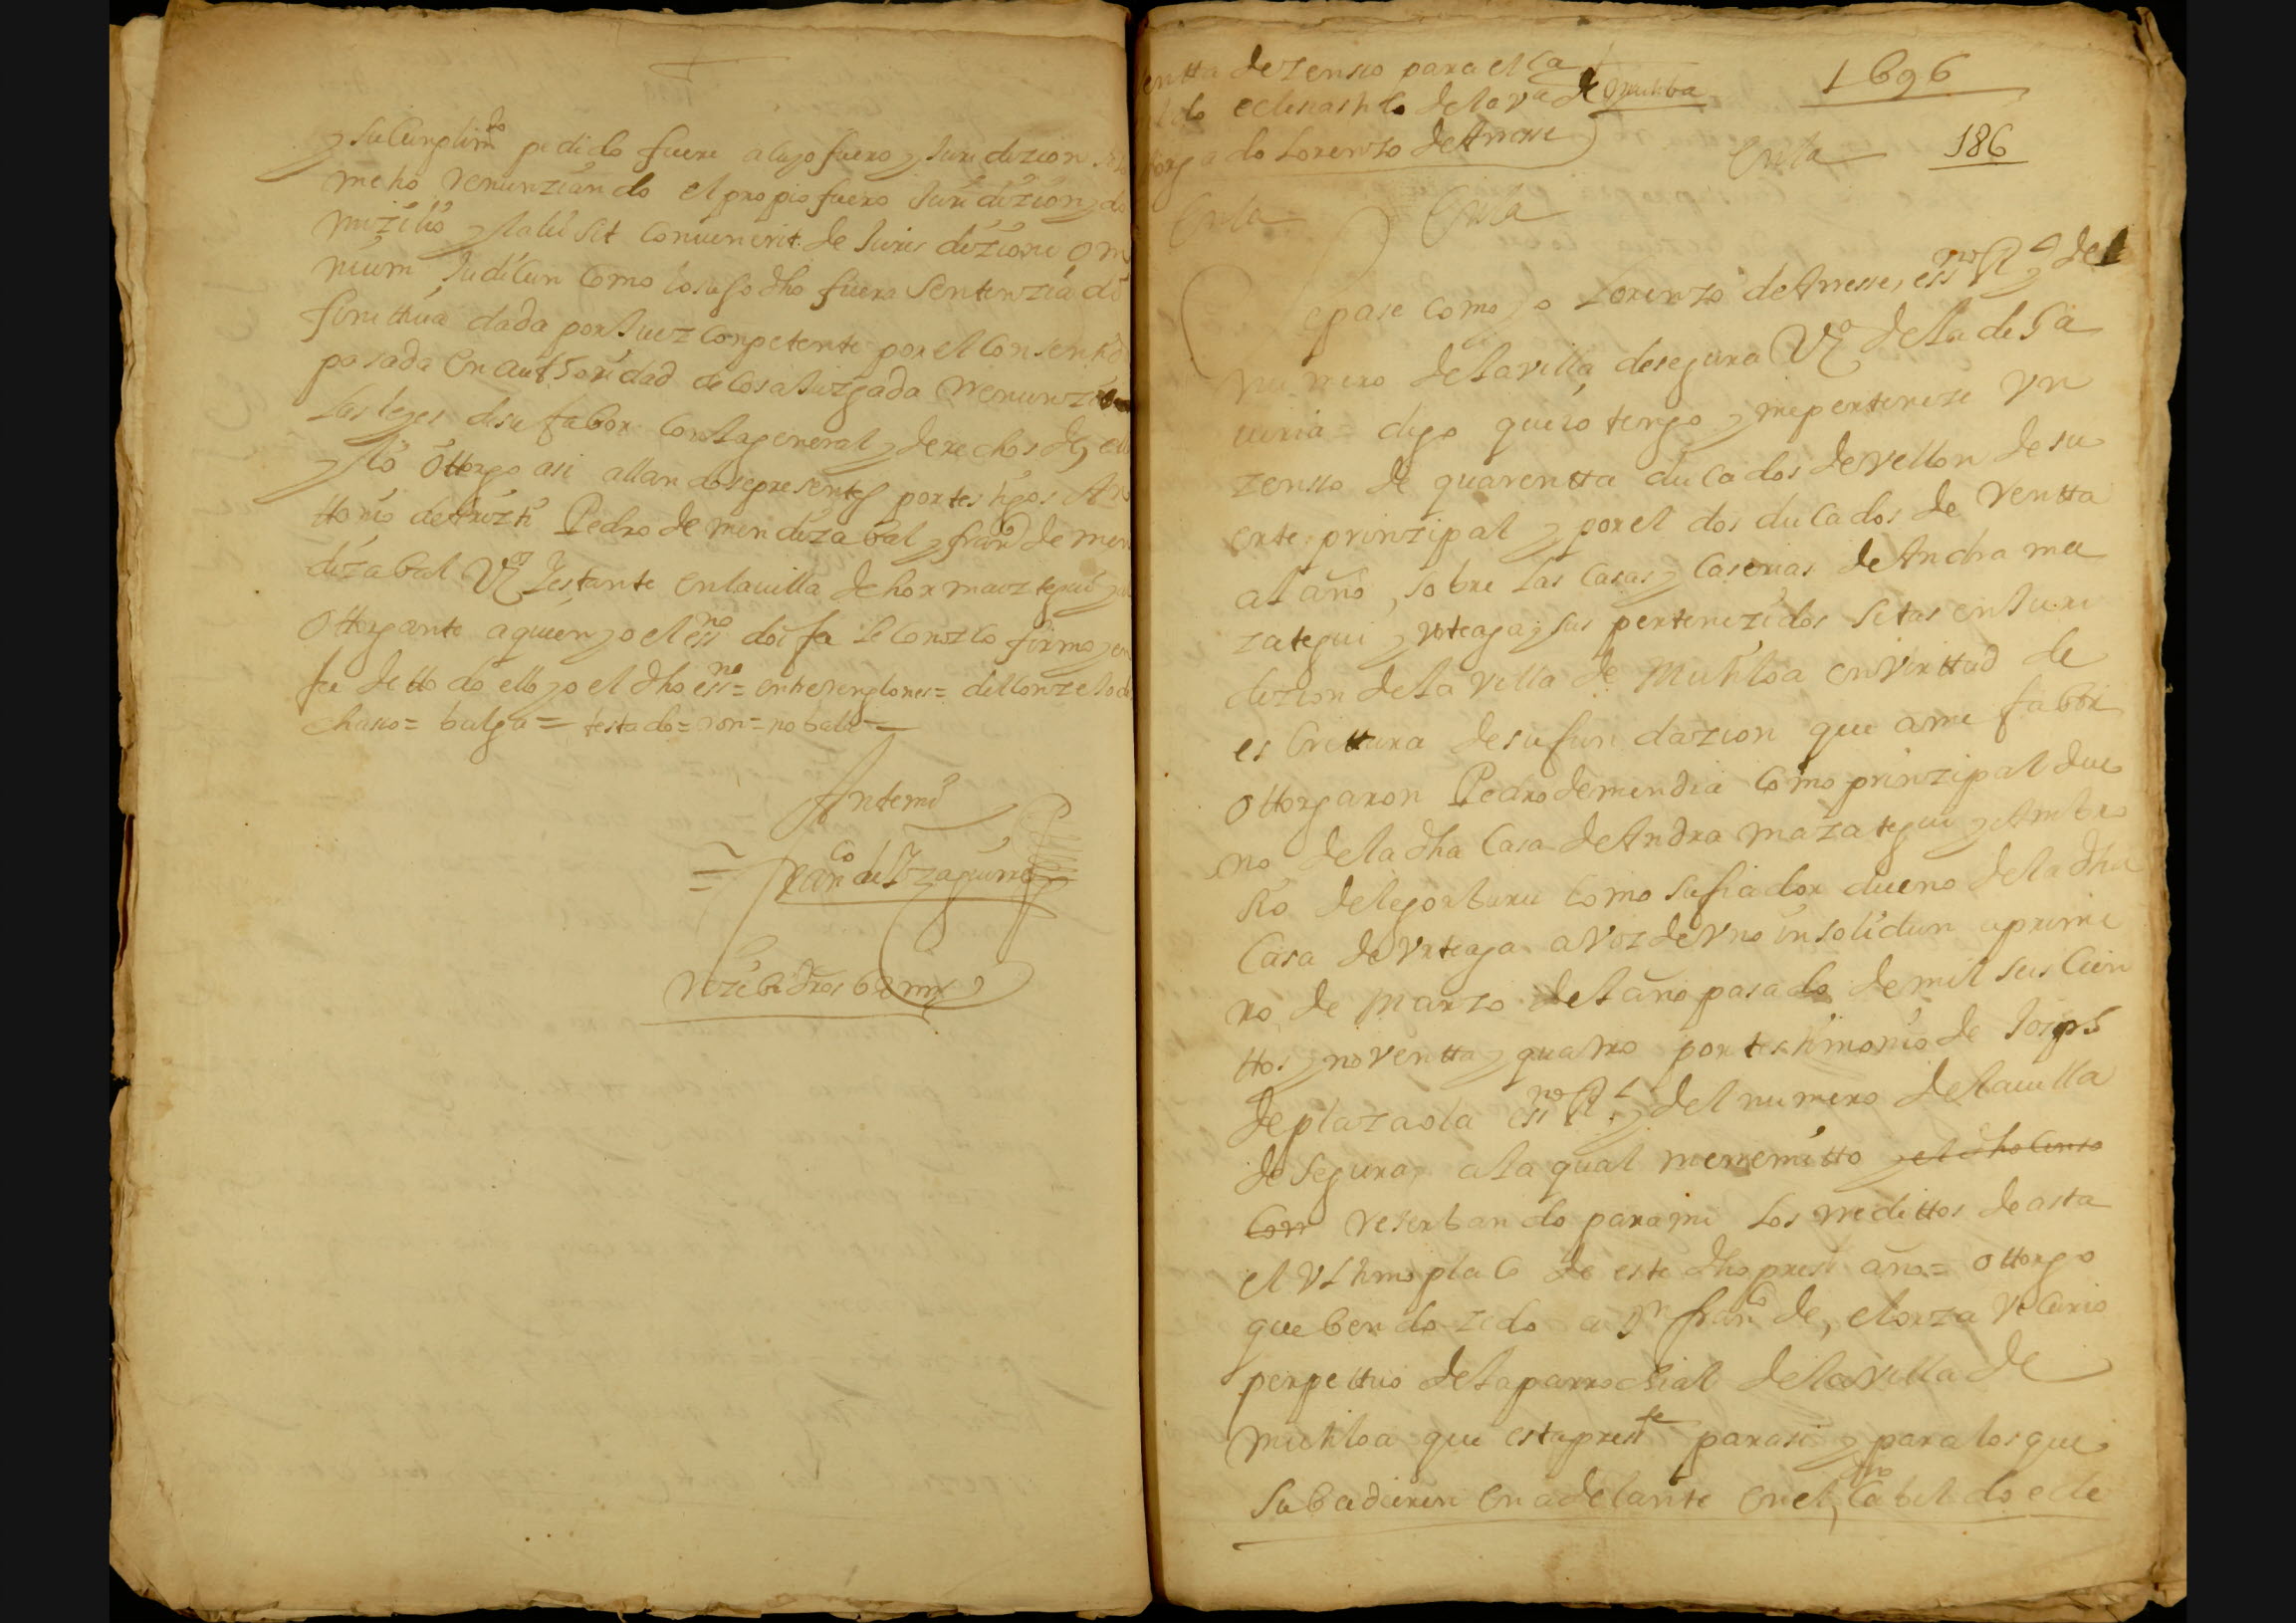 y su Cunplim.to pedido fuere a Cuyo fuero y Juridizion
meto Renunziando el propio fuero Juridizion y do
mizilio y la ley sit Convenerit de Juris dizione om
nium Judicun Como si lo susodho fuera Sentenzia di
finittiva dada por Juez Conpetente por el Consentida
pasada en authoridad de Cosa Juzgada Renunzio
Las leyes de su fabor Con la general y derechos de ella
y lo ottorgo asi allandose presentes por testigos An
ttonio de Pedro de mendizabal y fran.co de men
dizabal V.os y estante en la villa de hormaiztegui y al
Ottorgante a quien yo el ess.no doi fe le Conozco firmo y en
fee de ttodo ello yo el dho ess.no = entrerenglones =
= balga = testado = con = no bale =
Antemi
= Fran.co de Yzaguirre
Rezibi dros 68 mrs
entta de Zenso para el Ca
ildo eclesiastico de la V.a de mutiloa
torgado Lorenzo de Arrese
1696
Enta 186
Enta Enta
Sepase Como yo Lorenzo de Arrese, ess.no R.l y del
numero de la villa de segura V.o de la de Ga
viria digo que io tengo y me pertenese Un
Zenso de quarentta ducados de vellon de su
erte prinzipal y por el dos ducados de Rentta
al año, sobre las Casas y Caserias de Andra ma
zategui y urteaga y sus pertenezidos sitas en Juri
dizion de la villa de Mutiloa en virttud de
es Crittura de su fundazion que a mi fabor
ottorgaron Pedro de mendia Como prinzipal due
no de la dha Casa de Andra mazategui y Ambro
sio de legorburu Como su fiador dueno de la dha
Casa de Urteaga a voz de Uno in solidun a prime
ro de Marzo del año pasado de mil seis Cien
ttos y noventta y quatro por testimonio de Joseph
de plazaola ess.no R.l y del numero de la villa
de Segura, a la qual me Remitto y el dho Censo
Con Reserbando para mi los Redittos de asta
el Ultimo plaço de este dho pres.te año = Ottorgo
que bendo zedo a D.n fran.co de, elorza Vicario
perpettuo de la parrochial de la villa de
Mutiloa que esta pres.te para si y para los que
Subcedieren en adelante en el, dho Cabildo ecle